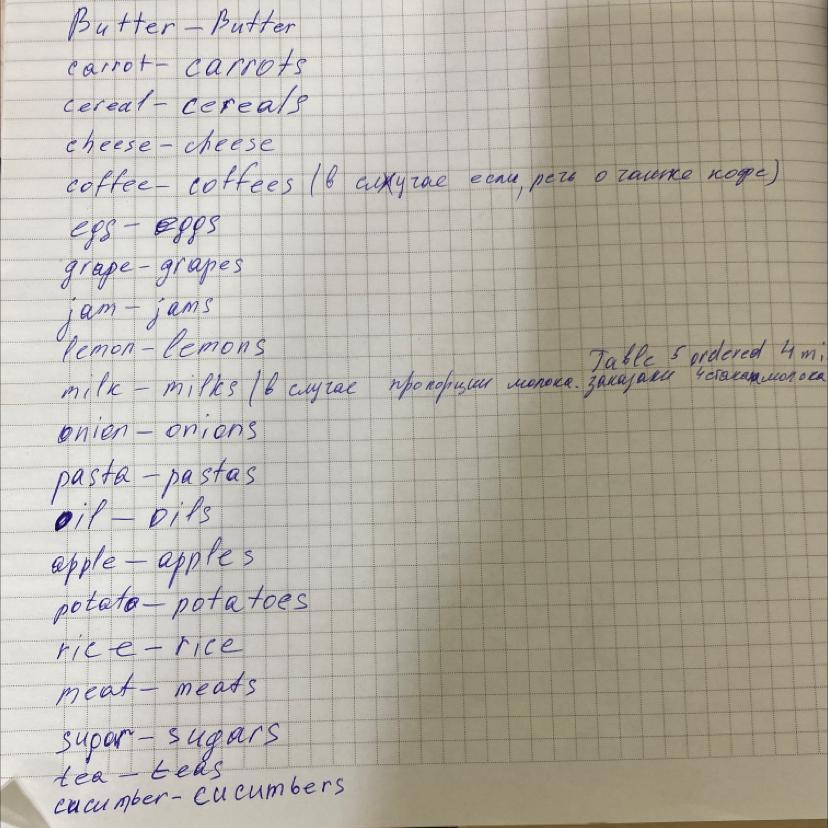 Butter – Butter
carrot – carrots
cereal – cereals
cheese – cheese
coffee – coffees (в случае если, речь о чашке кофе)
egg – eggs
grape – grapes
jam – jams
lemon – lemons
Table 5 ordered 4 mi
milk – milks (в случае пропорции молока. заказали 4 стакана молока
onion – onions
pasta – pastas
oil – oils
apple – apples
potato – potatoes
rice – rice
meat – meats
sugar – sugars
tea – teas
cucumber – cucumbers